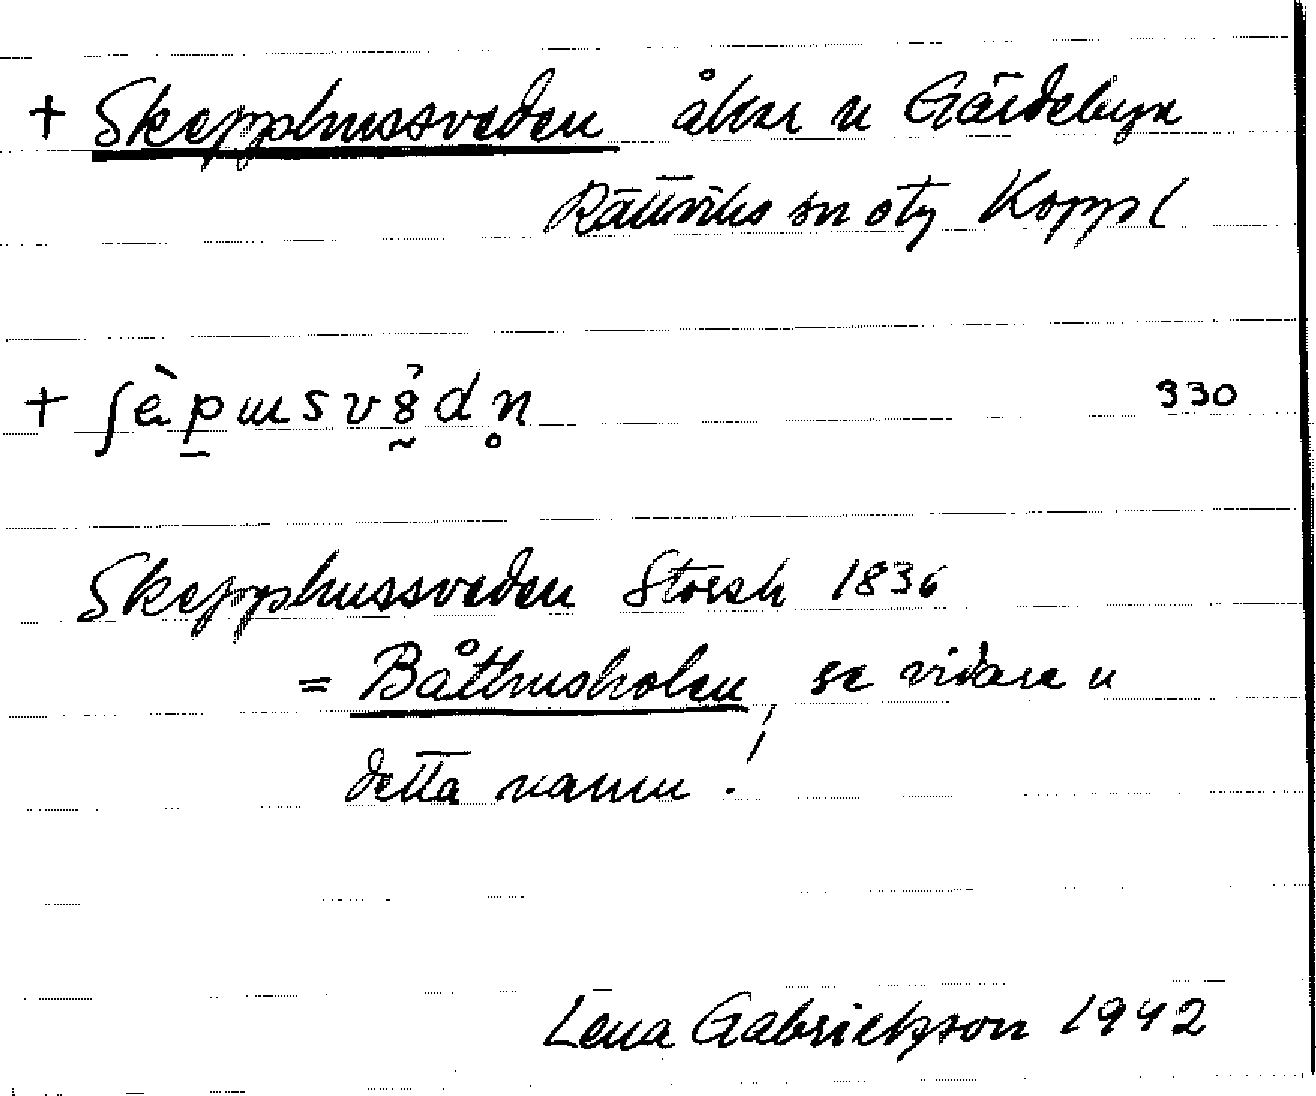 + Skepphussveden åker u Gärdebyn
Rättviks sn otg Koppl
+ ʃèpɯsvȣdn̥ 330
Skepphussveden Storsk 1836
= Båthusholen, se vidare u
detta namn!
Lena Gabrielsson 1942